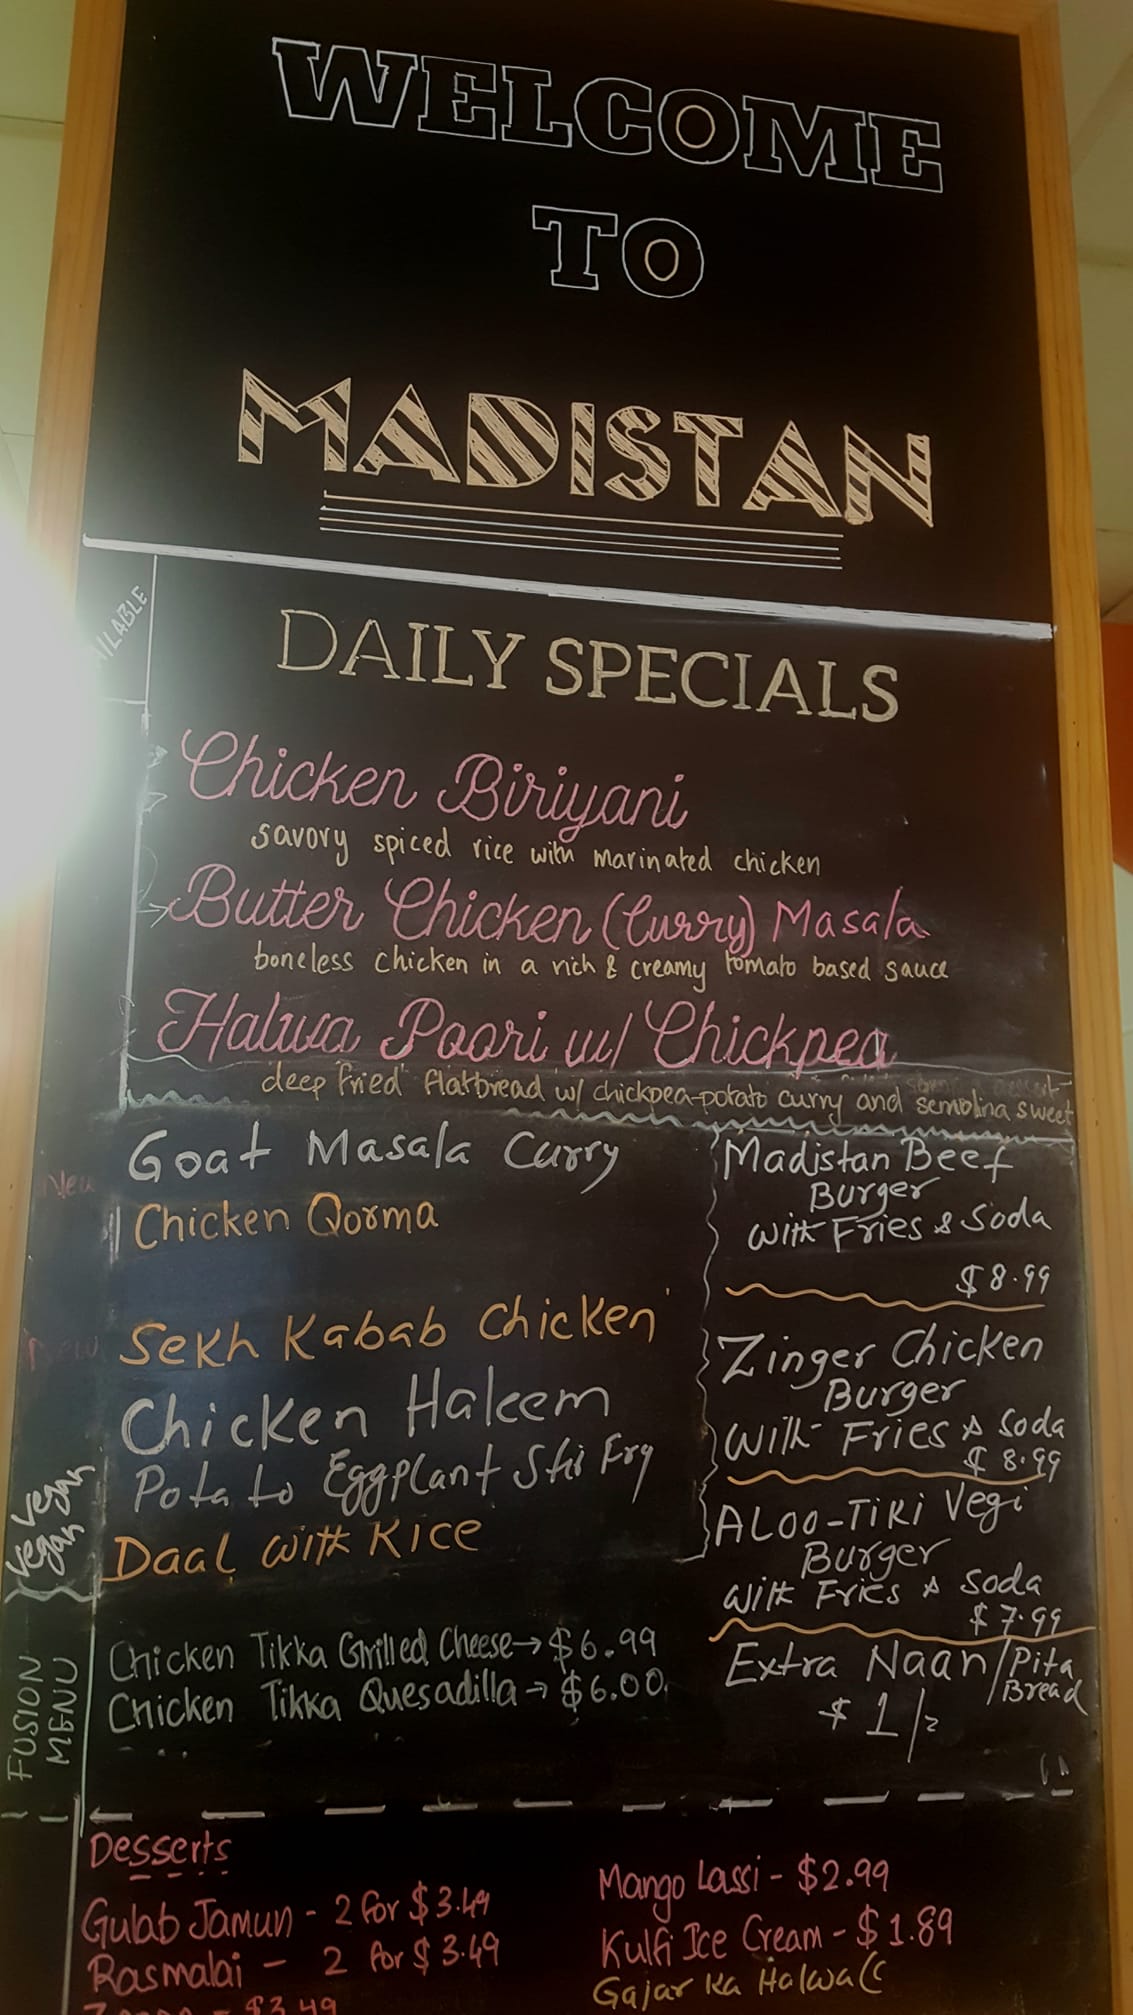 WELCOME
TO
MADISTAN
DAILY SPECIALS
Chicken Biriyani
savory spiced rice with marinated chicken
Butter Chicken (Curry) Masala
boneless chicken in a rich & creamy tomato based sauce
Halwa Poori w/ Chickpea
deep fried flatbread w/ chickpea-potato curry and semolina sweet
New
Goat Masala Curry
Chicken Qorma
New
Sekh Kabab Chicken
Chicken Haleem
Potato Eggplant Stri Fry
Daal with Rice
Vegan
Madistan Beef
Burger
with Fries & Soda
$8.99
Zinger Chicken
Burger
with Fries & Soda
$8.99
ALoo-Tiki Vegi
Burger
with Fries & Soda
$7.99
Extra Naan/Pita
Bread
$1/=
FUSION
MENU
Chicken Tikka Grilled Cheese→$6.99
Chicken Tikka Quesadilla→$6.00
Desserts
Gulab Jamun - 2 for $3.49
Rasmalai - 2 for $3.49
$3.49
Mango Lassi - $2.99
Kulfi Ice Cream - $1.89
Gajar Ka Halwa